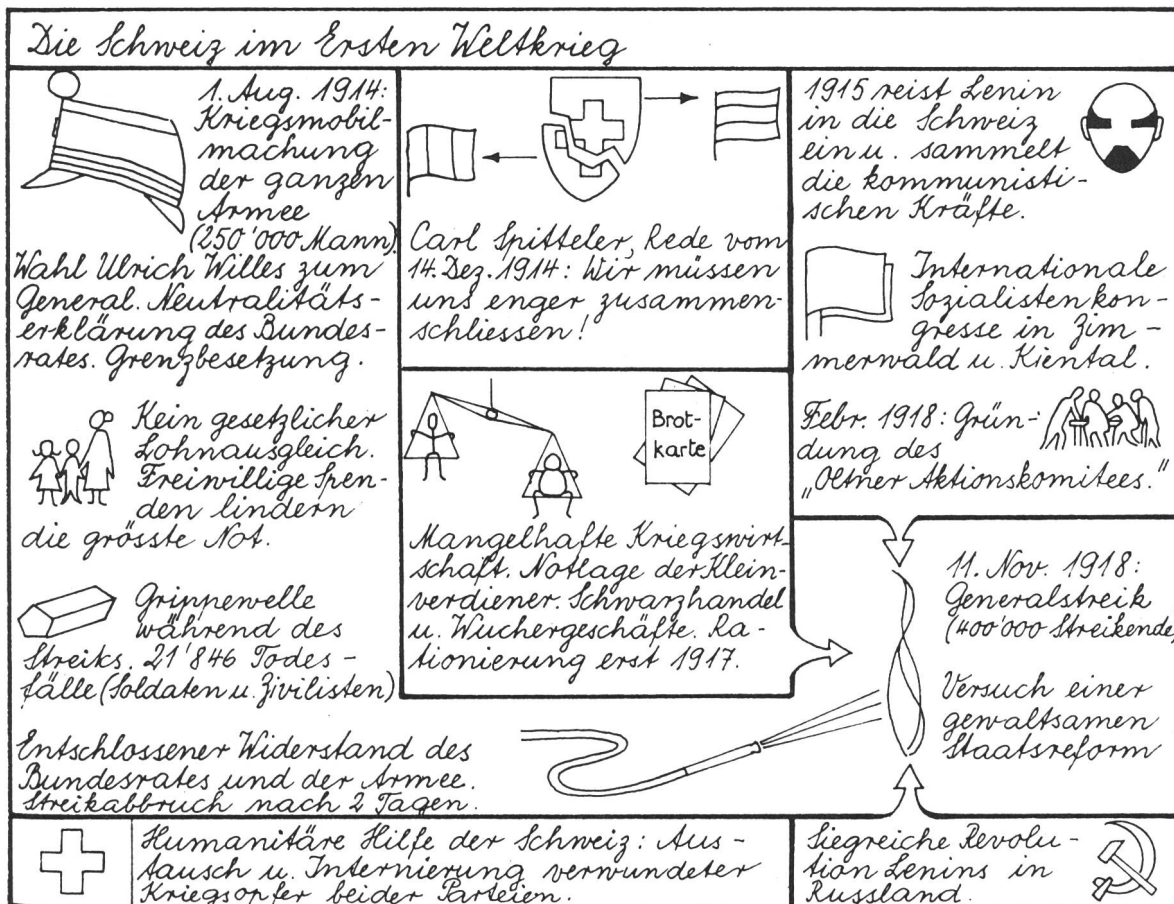 Die Schweiz im Ersten Weltkrieg
1. Aug. 1914:
Kriegsmobil-
machung
der ganzen
Armee
(250'000 Mann).
Wahl Ulrich Willes zum
General. Neutralitäts-
erklärung des Bundes-
rates. Grenzbesetzung.
Kein gesetzlicher
Lohnausgleich.
Freiwillige Spen-
den lindern
die grösste Not.
Grippewelle
während des
Streiks. 21'846 Todes-
fälle (Soldaten u. Zivilisten)
Entschlossener Widerstand des
Bundesrates und der Armee.
Streikabbruch nach 2 Tagen.
Carl Spitteler, Rede vom
14. Dez. 1914: Wir müssen
uns enger zusammen-
schliessen!
Brot-
karte
Mangelhafte Kriegswirt-
schaft. Notlage der Klein-
verdiener. Schwarzhandel
u. Wuchergeschäfte. Ra-
tionierung erst 1917.
1915 reist Lenin
in die Schweiz
ein u. sammelt
die kommunisti-
schen Kräfte.
Internationale
Sozialistenkon-
gresse in Zim-
merwald u. Kiental.
Febr. 1918: Grün-
dung des
"Oltner Aktionskomitees."
11. Nov. 1918:
Generalstreik
(400'000 Streikende)
Versuch einer
gewaltsamen
Staatsreform
Humanitäre Hilfe der Schweiz: Aus-
tausch u. Internierung verwundeter
Kriegsopfer beider Parteien.
Siegreiche Revolu-
tion Lenins in
Russland.